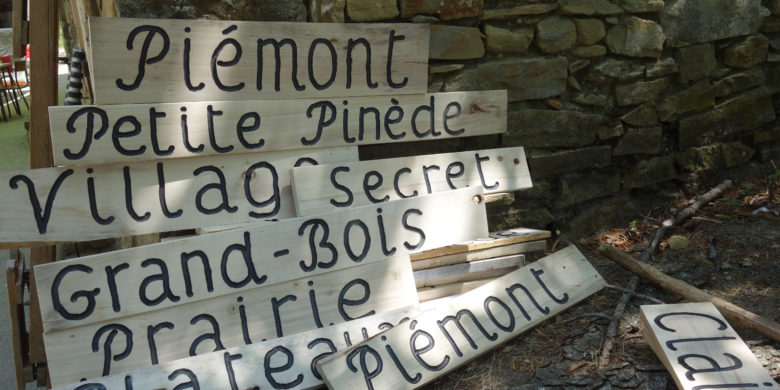 Piémont
Petite Pinède
Village
secret
Grand-Bois
Prairie
Plateau
Piémont